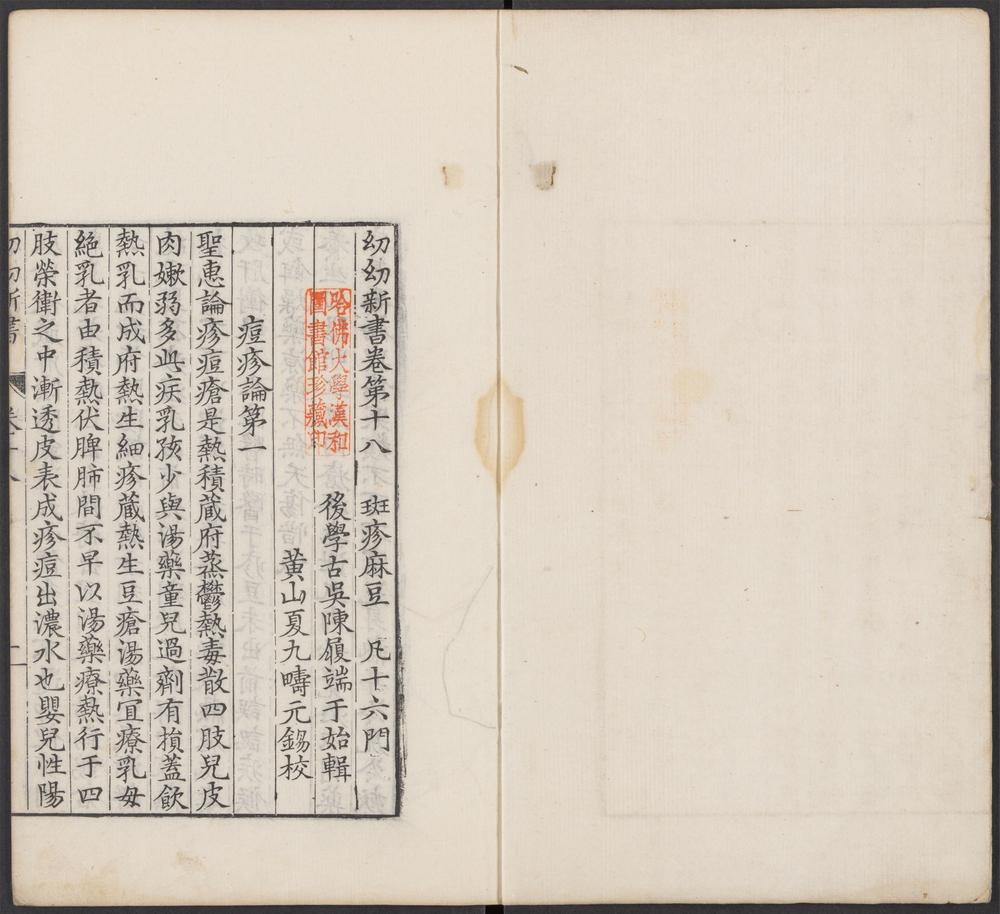 幼幼新書卷第十八　斑疹麻豆　凡十六門
後學古吳陳履端于始輯
黃山夏九疇元錫校
哈佛大學漢和
圖書館珍藏印
痘疹論第一
聖惠論疹痘瘡是熱積蔵府蒸鬱熱毒散四肢兒皮
肉嫰弱多此疾乳孩少與湯藥童兒過劑有損蓋飲
熱乳而成府熱生細疹蔵熱生豆瘡湯藥宜療乳母
絶乳者由積熱伏脾肺間不早以湯藥療熱行于四
肢榮衛之中漸透皮表成疹痘出濃水也嬰兒性陽
幼幼新書　卷十八　一